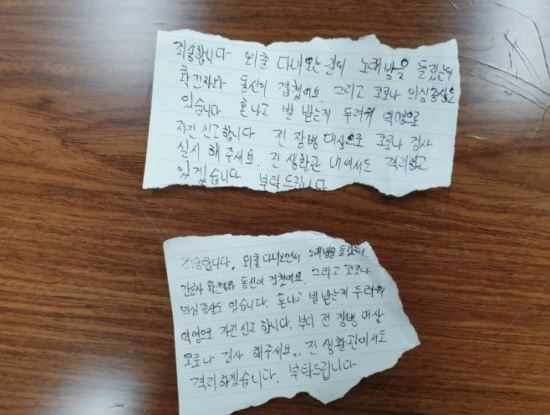 죄송합니다 외출 다녀오는 길에 노래방을 들렸는데
확진자와 동선이 겹쳤어요. 그리고 코로나 의심증상도
있습니다 혼나고 벌 받는게 두려워 익명으로
자진 신고합니다 전 장병 대상으로 코로나 검사
실시 해 주세요. 전 생활관 내에서도 격리하고
있겠습니다 부탁드립니다
죄송합니다. 외출 다녀오면서 노래방을 들렸는데
간호사 확진자와 동선이 겹쳤어요. 그리고 코로나
의심증상도 있습니다. 혼나고 벌 받는게 두려워
익명으로 자진신고 합니다. 부디 전 장병 대상
코로나 검사 해주세요.. 전 생활관에서도
격리하겠습니다. 부탁드립니다